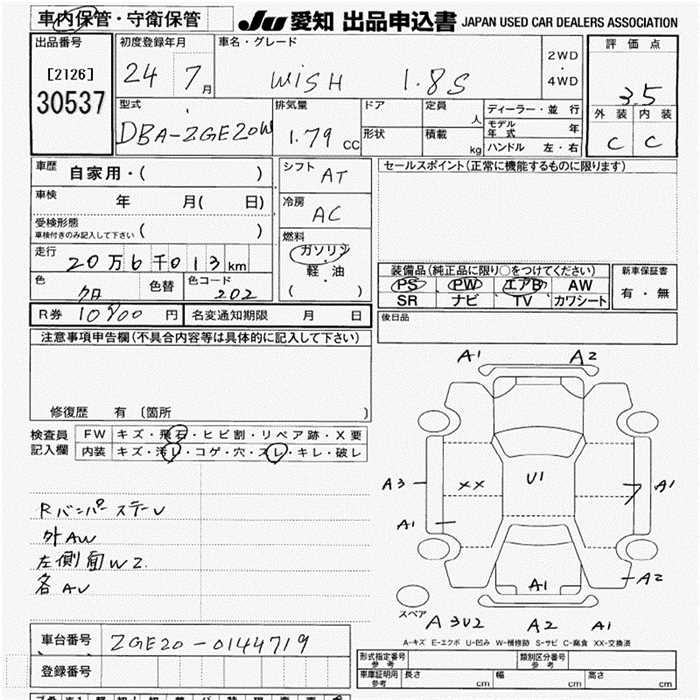 車内保管・守衛保管
JU 愛知 出品申込書 JAPAN USED CAR DEALERS ASSOCIATION
出品番号
[2126]
30537
初度登録年月
24 7月
車名・グレード
WISH 1.8S
2WD
・
4WD
評価点
3.5
外装 内装
C C
型式
DBA-ZGE20W
排気量
1.79 CC
ドア
形状
定員
人
積載
kg
ディーラー・並行
モデル年式 年
ハンドル 左・右
車歴
自家用・( )
車検
年 月( 日)
受検形態
車検付きのみ記入して下さい ( )
走行
20万6千013km
色
クロ
色替
色コード
202
シフト
AT
冷房
AC
燃料
ガソリン
・
軽・油
( )
セールスポイント(正常に機能するものに限ります)
装備品(純正品に限り○をつけてください)
PS PW エアB AW
SR ナビ TV カワシート
新車保証書
有・無
R券 10900 円
名変通知期限 月 日
後日品
注意事項申告欄(不具合内容等は具体的に記入して下さい)
修復歴 有 〔箇所 〕
検査員
記入欄
FW キズ・飛石・ヒビ割・リペア跡・X要
内装 キズ・汚レ・コゲ・穴・スレ・キレ・破レ
Rバンパーステーレ
外AW
左側面W2
各AU
A1 A2
A3 XX U1 A1
A1
A1 A2
スペア
A3U2 A2 A1
A-キズ E-エクボ U-凹み W-補修跡 S-サビ C-腐食 XX-交換済
車台番号
ZGE20-0144719
登録番号
形式指定番号
参考
類別区分番号
参考
車庫証明用
参考
長さ cm 幅 cm 高さ cm